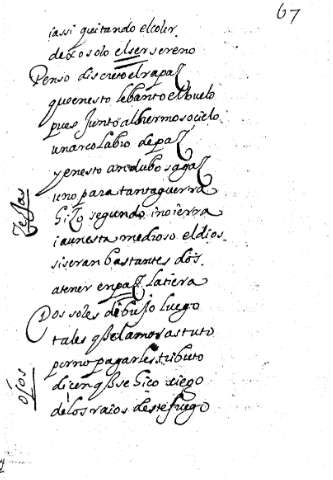 67
iassi quitando el color
dexo solo el ser sereno
Penso discreto el rapaz
qu en esto lebanto el buelo
pues junto al hermoso cielo
un arco labio de paz
y en esto andubo sagaz
uno para tanta guerra
hizo segundo i no ierra
i aun esta medioso el dios
si seran bastantes dos
a tener en paz la tiera
Dos soles dibujo luego
tales q el amor astuto
por no pagarles tributo
dicen q se hiço ciego
de los raios deste fuego
Zejas
ojos